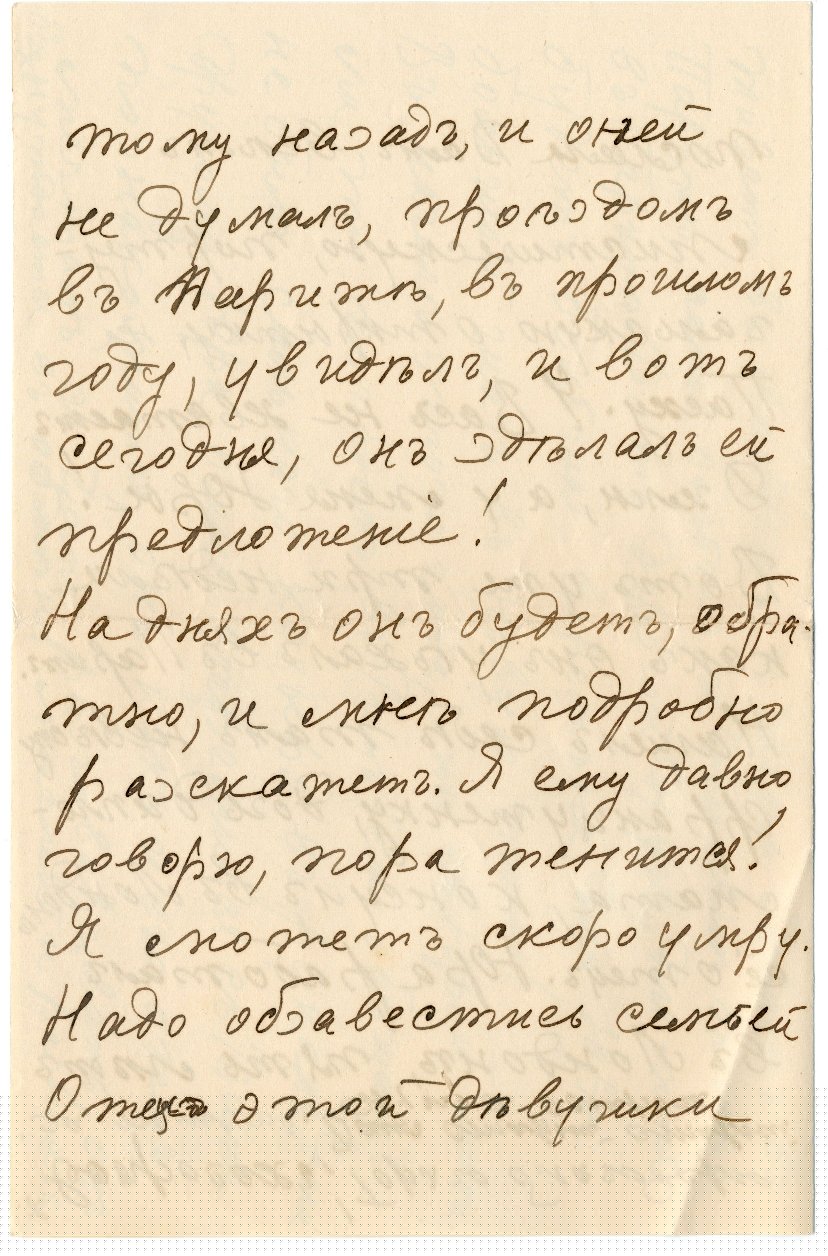 тому назадъ, и о ней
не думалъ, проѣздомъ
въ Парижѣ, въ прошломъ
году, увидѣлъ, и вотъ
сегодня, онъ здѣлалъ ей
предложеніе!
На дняхъ онъ будетъ, обра-
тно, и мнѣ подробно
разскажетъ. Я ему давно
говорю, пора женится!
Я можетъ скоро умру.
Надо обзавестись семьей
Отецъ этой дѣвушки